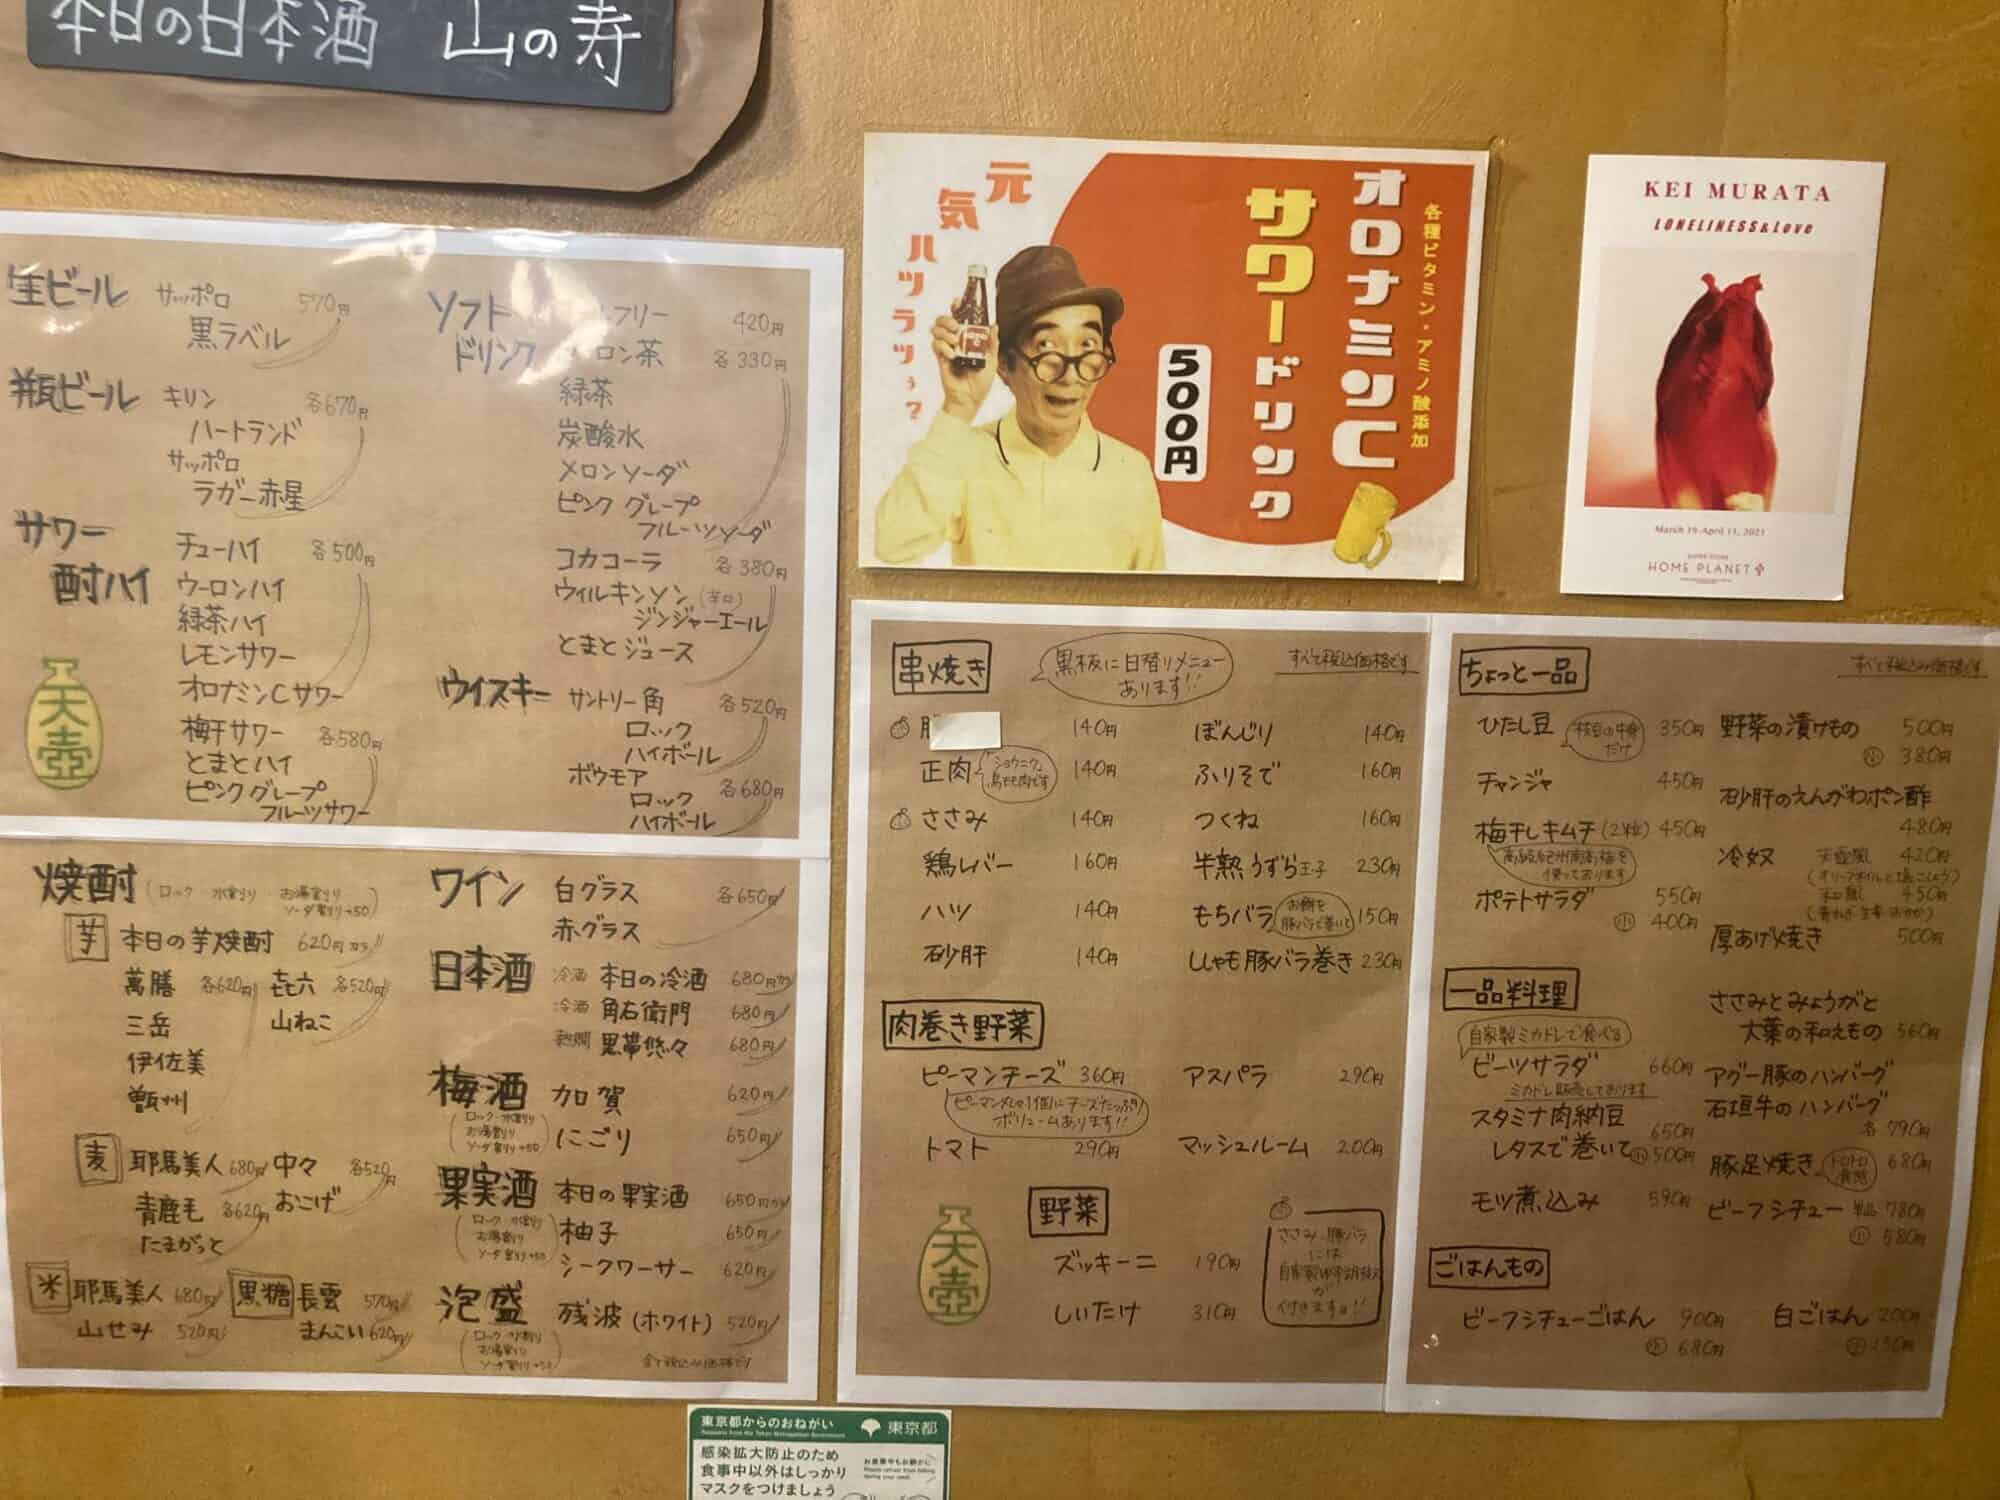 本日の日本酒 山の寿
生ビール サッポロ 570円
黒ラベル
瓶ビール キリン 各670円
ハートランド
サッポロ
ラガー赤星
サワー
酎ハイ
チューハイ 各500円
ウーロンハイ
緑茶ハイ
レモンサワー
オロナミンCサワー
梅干サワー 各580円
とまとハイ
ピンクグレープ
フルーツサワー
天壺
ソフト
ドリンク
フリー 420円
ロン茶 各330円
緑茶
炭酸水
メロンソーダ
ピンクグレープ
フルーツソーダ
コカコーラ 各380円
ウィルキンソン(辛口)
ジンジャーエール
とまとジュース
ウイスキー サントリー角 各520円
ロック
ハイボール
ボウモア 各680円
ロック
ハイボール
焼酎 (ロック・水割り・お湯割り
ソーダ割り+50)
芋 本日の芋焼酎 620円から
萬膳 各620円 㐂六 各520円
三岳 山ねこ
伊佐美
曽州
麦 耶馬美人 680円 中々 各520円
青鹿毛 各620円 おこげ
たまがっと
米 耶馬美人 680円 黒糖 長雲 570円
山せみ 520円 まんこい 620円
ワイン 白グラス 各650円
赤グラス
日本酒 冷酒 本日の冷酒 680円から
冷酒 角右衛門 680円
熱燗 黒帯悠々 680円
梅酒 加賀 620円
(ロック・水割り
お湯割り
ソーダ割り+50)
にごり 650円
果実酒 本日の果実酒 650円から
(ロック・水割り
お湯割り
ソーダ割り+50)
柚子 650円
シークワーサー 620円
泡盛 残波(ホワイト) 520円
(ロック・水割り
お湯割り
ソーダ割り+50)
全て税込み価格です
元気ハツラツぅ?
オロナミンC
サワードリンク
500円
各種ビタミン・アミノ酸添加
KEI MURATA
LONELINESS & Love
March 19-April 11, 2021
HOME PLANET
串焼き
黒板に日替りメニュー
あります!!
すべて税込価格です
140円 ぼんじり 140円
正肉 「ショウニク」鳥もも肉です 140円 ふりそで 160円
ささみ 140円 つくね 160円
鶏レバー 160円 半熟うずら玉子 230円
ハツ 140円 もちバラ お餅を豚バラで巻いて 150円
砂肝 140円 ししゃも豚バラ巻き 230円
肉巻き野菜
ピーマンチーズ 360円 アスパラ 290円
ピーマン丸々1個にチーズたっぷり
ボリュームあります!!
トマト 290円 マッシュルーム 200円
野菜
ズッキーニ 190円
しいたけ 310円
天壺
ささみ・豚バラ
には
自家製ゆず胡椒
が
付きますよ!!
ちょっと一品
すべて税込み価格です
ひたし豆 350円 野菜の漬けもの 500円
小 380円
チャンジャ 450円 砂肝のえんがわポン酢
480円
梅干しキムチ(2粒) 450円
高級紀州南高梅を
使っております
冷奴 天壺風 420円
(オリーブオイルと塩こしょう)
和風 450円
ポテトサラダ 550円
小 400円
厚あげ焼き 500円
一品料理
自家製ミカドレで食べる
ビーツサラダ 660円
ミカドレ販売しております
スタミナ肉納豆 650円
レタスで巻いて 小 500円
モツ煮込み 590円
ささみとみょうがと
大葉の和えもの 560円
アグー豚のハンバーグ
石垣牛のハンバーグ
各790円
豚足焼き トロトロ食感 680円
ビーフシチュー 単品 780円
小 580円
ごはんもの
ビーフシチューごはん 900円 白ごはん 200円
小 680円 小 150円
東京都からのおねがい 東京都
感染拡大防止のため
食事中以外はしっかり
マスクをつけましょう